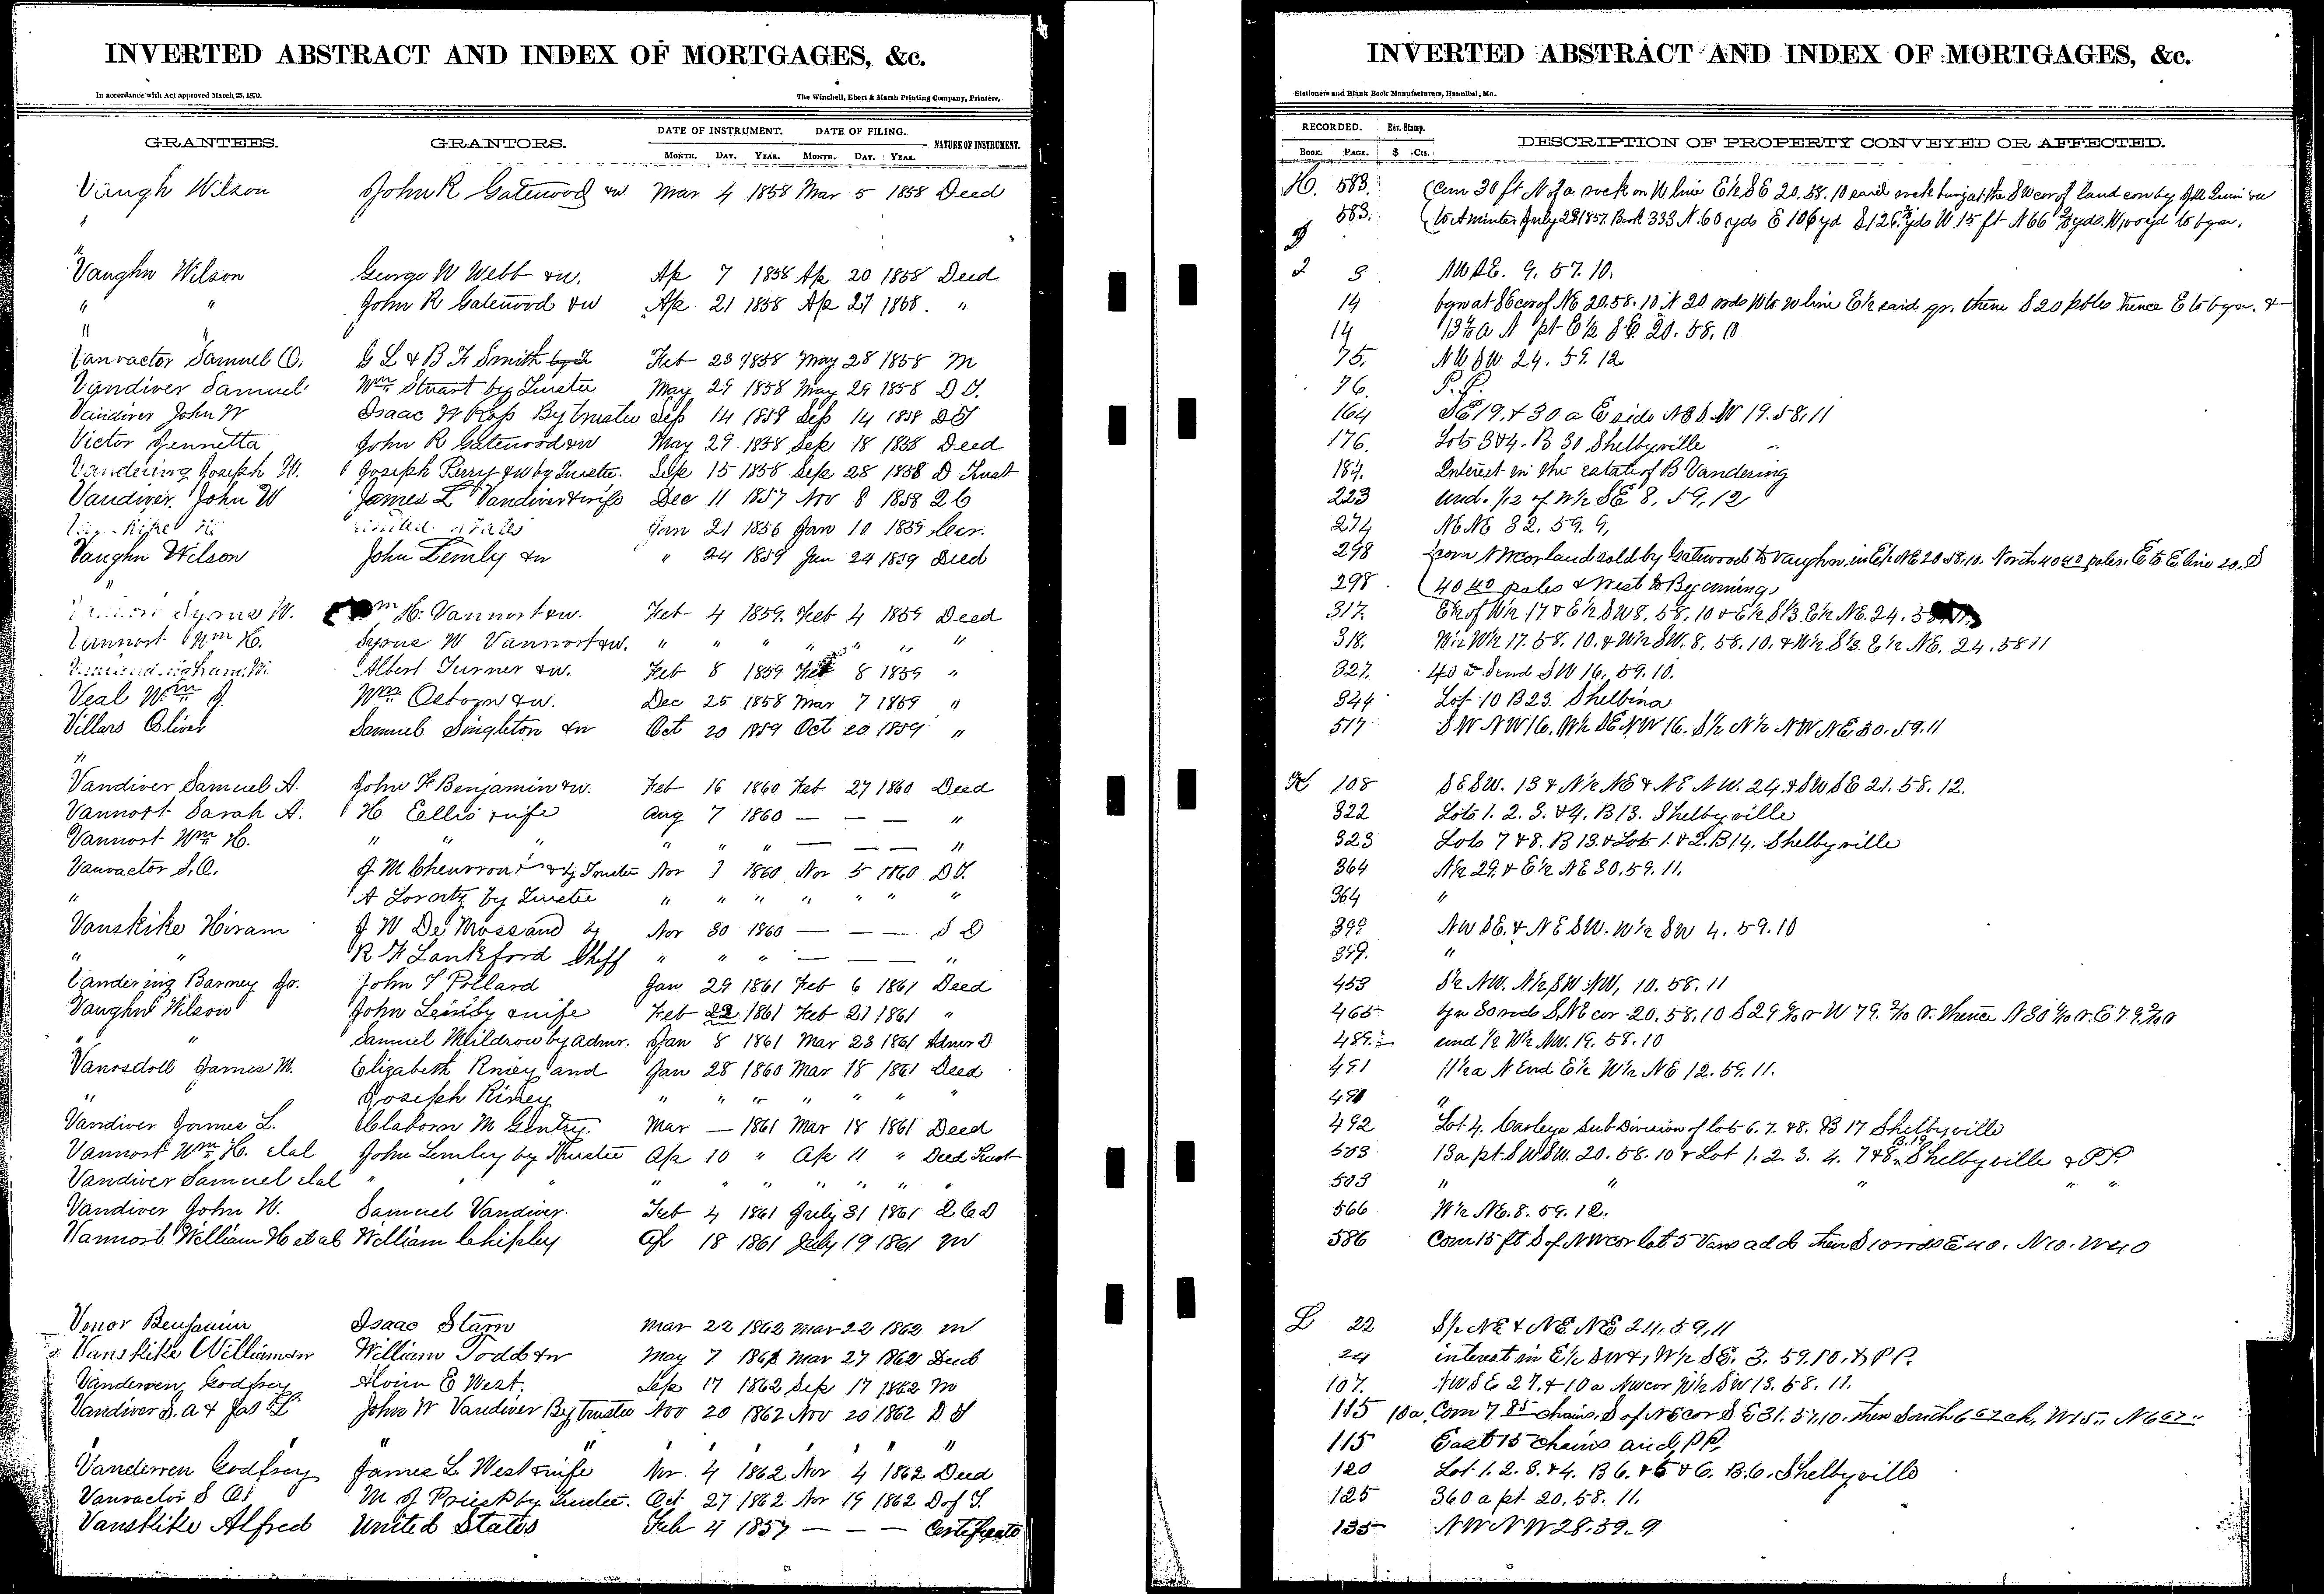 INVERTED ABSTRACT AND INDEX OF MORTGAGES, &c.
In accordance with Act approved March 25, 1870.
The Winchell, Ebert & Marsh Printing Company, Printers,
GRANTEES. GRANTORS. DATE OF INSTRUMENT. DATE OF FILING. NATURE OF INSTRUMENT.
MONTH. DAY. YEAR. MONTH. DAY. YEAR.
Vaugh Wilson John R Gatewood &w Mar 4 1858 Mar 5 1858 Deed
"
"
Vaughn Wilson George W Webb &w. Ap 7 1858 Ap 20 1858 Deed
" " John R Gatewood &w Ap 21 1858 Ap 27 1858. "
" "
Vanvactor Samuel O. G L & B F Smith Feb 23 1858 May 28 1858 M
Vandiver Samuel Wm Stuart by Trustee May 29 1858 May 29 1858 D T.
Vandiver John W Isaac W Ross By trustee Sep 14 1858 Sep 14 1858 DT
Victor Jennetta John R Gatewood &w May 29 1858 Sep 18 1858 Deed
Vandering Joseph W. Joseph Perry &w by Trustee. Sep 15 1858 Sep 28 1858 D Trust
Vandiver. John W James L Vandiver & wife Dec 11 1857 Nov 8 1858 2 C
United States Jan 21 1856 Jan 10 1859 Cer.
Vaughn Wilson John Lemly &w " 24 1859 Jan 24 1859 Deed
"
Cyrus W. Wm H. Vannort &w. Feb 4 1859. Feb 4 1859 Deed
Vannort Wm H. Cyrus W Vannort &w. " " " " " " "
Albert Turner &w. Feb 8 1859 Feb 8 1859 "
Veal Wm J. Wm Osborn &w. Dec 25 1858 Mar 7 1859 "
Villars Oliver Samuel Singleton &w Oct 20 1859 Oct 20 1859 "
"
Vandiver Samuel A. John F Benjamin &w. Feb 16 1860 Feb 27 1860 Deed
Vannort Sarah A. H Ellis & wife Aug 7 1860 — — — "
Vannort Wm H. " " " " " " — — — "
Vanvactor S. O. J M Chevront & by Trustee Nov 1 1860 Nov 5 1860 D T.
" A Lorntz by Trustee " " " " " " "
Vanskike Hiram J W De Moss and by Nov 30 1860 — — — S D
" " R F Lankford Shff " " " — — — "
Vandering Barney Jr. John T Pollard Jan 29 1861 Feb 6 1861 Deed
Vaughn Wilson John Lemly & wife Feb 22 1861 Feb 21 1861 "
" " Samuel Muldrow by Admr. Jan 8 1861 Mar 23 1861 Admr D
Vanosdoll James M. Elizabeth Riney and Jan 28 1860 Mar 18 1861 Deed
" Joseph Riney " " " " " " "
Vandiver James L. Claborn M Gentry. Mar — 1861 Mar 18 1861 Deed
Vannort Wm H. etal John Lemley by Trustee Ap 10 " Ap 11 " Deed Trust
Vandiver Samuel etal " " " " " " " " "
Vandiver John W. Samuel Vandiver. Feb 4 1861 July 31 1861 2 C D
Vannort William H et al William Chipley Ap 18 1861 July 19 1861 M
Venor Benjamin Isaac Stam Mar 22 1862 Mar 22 1862 M
Vanskike William William Todd &w May 7 1861 Mar 27 1862 Deed
Vanderven Godfrey Alvin E West. Sep 17 1862 Sep 17 1862 M
Vandiver S. A & Jas L John W Vandiver By trustee Nov 20 1862 Nov 20 1862 D T
" " " " " " " " " "
Vanderven Godfrey James L West & wife Nov 4 1862 Nov 4 1862 Deed
Vanvactor S O. M J Priest by Trustee. Oct 27 1862 Nov 19 1862 D of T.
Vanskike Alfred United States Feb 4 1857 — — — Certificate
INVERTED ABSTRACT AND INDEX OF MORTGAGES, &c.
Stationers and Blank Book Manufacturers, Hannibal, Mo.
RECORDED. Rev. Stamp. DESCRIPTION OF PROPERTY CONVEYED OR AFFECTED.
BOOK. PAGE. $ Cts.
H. 583. Com 30 ft N of a rock on W line E½ SE 20. 58. 10 said rock being at the SW cor of land con by
583. July 28 1857. Book 333 N. 60 yds E 106 yd W 15 ft to bgn.
J
2 8 9. 57. 10.
14 bgn at SE cor of NE 20. 58. 10 N 20 rods W to W line E½ said qr. thence S 20 poles thence E to bgn. &
14 N pt E½ SE. 20. 58. 10
75. NW SW 24. 59. 12
76. P. P.
164 SE 19. & 30 a E side NE SW 19. 58. 11
176. Lots 3 & 4. B 30 Shelbyville
187. Interest in the estate of B Vandering
223 und. 1/12 of W½ SE 8. 59. 12
274 NE NE 32. 59. 9.
298 Com NW cor land sold by Gatewood to Vaughn in E½ NE 20 58. 10. North 40 poles. E to E line 20. S
298 poles & West to Beginning
317. E½ of W½ 17 & E½ SW 8. 58. 10 & E½ S⅓ E½ NE. 24.
318. W½ W½ 17. 58. 10. & W½ SW. 8. 58. 10. & W½ S⅓. E½ NE. 24. 58 11
327. 40 a S end SW 16. 59. 10.
344 Lot 10 B 23. Shelbina
517 SW NW 16. W½ SE NW 16. S½ N½ NW NE 30. 59. 11
K 108 SE SW. 13 & N½ NE & NE NW. 24. & SW SE 21. 58. 12.
322 Lots 1. 2. 3. & 4. B 13. Shelbyville
323 Lots 7 & 8. B 13. & Lots 1. & 2. B 14. Shelbyville
364 N½ 29. & E½ NE 30. 59. 11.
364 "
399 NW SE. & NE SW. W½ SW 4. 59. 10
399. "
453 S½ NW. N½ SW NW, 10. 58. 11
465 bgn 80 rods S NE cor 20. 58. 10
489. und ½ W½ NW. 19. 58. 10
491 11½ a N End E½ W½ NE 12. 59. 11.
491 "
492 Lot 4. Carleys Sub Division of lots 6. 7. & 8. B 17 Shelbyville
503 13 a pt. SW SW. 20. 58. 10 & Lot 1. 2. 3. 4. 7 & 8 B. 19 Shelbyville & P P.
503 " " " " "
566 W½ NE. 8. 59. 12.
586 Com 15 ft S of NW cor lot 5 Vans add then S 10 rods E 40. N 10. W 40
L 22 S½ NE & NE NE 24. 59. 11
24 interest in E½ SW &, W½ SE. 3. 59. 10. & P P.
107. NW SE 27. & 10 a NW cor W½ SW 13. 58. 11.
115 10 a, Com 7 85 chains. S of NE cor SE 31. 57. 10. then South 6 67 ch. W 15 " N 6 67 "
115 East 15 chains and PP.
120 Lot 1. 2. 3. & 4. B 6. & 5 & 6. B. 6. Shelbyville
125 360 a pt. 20. 58. 11.
135 NW NW 28. 59. 9